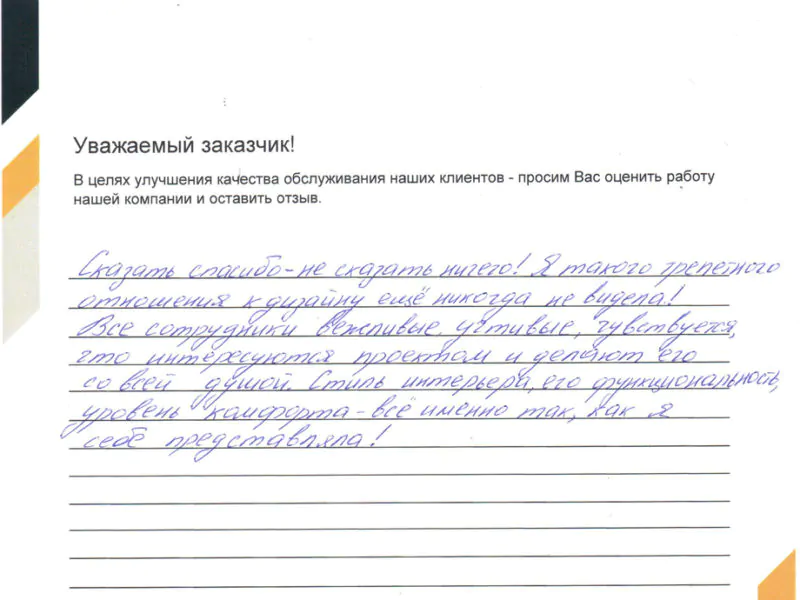 Уважаемый заказчик!
В целях улучшения качества обслуживания наших клиентов - просим Вас оценить работу
нашей компании и оставить отзыв.
Сказать спасибо - не сказать ничего! Я такого трепетного
отношения к дизайну ещё никогда не видела!
Все сотрудники вежливые, учтивые, чувствуется,
что интересуются проектом и делают его
со всей душой. Стиль интерьера, его функциональность,
уровень комфорта - всё именно так, как я
себе представляла!